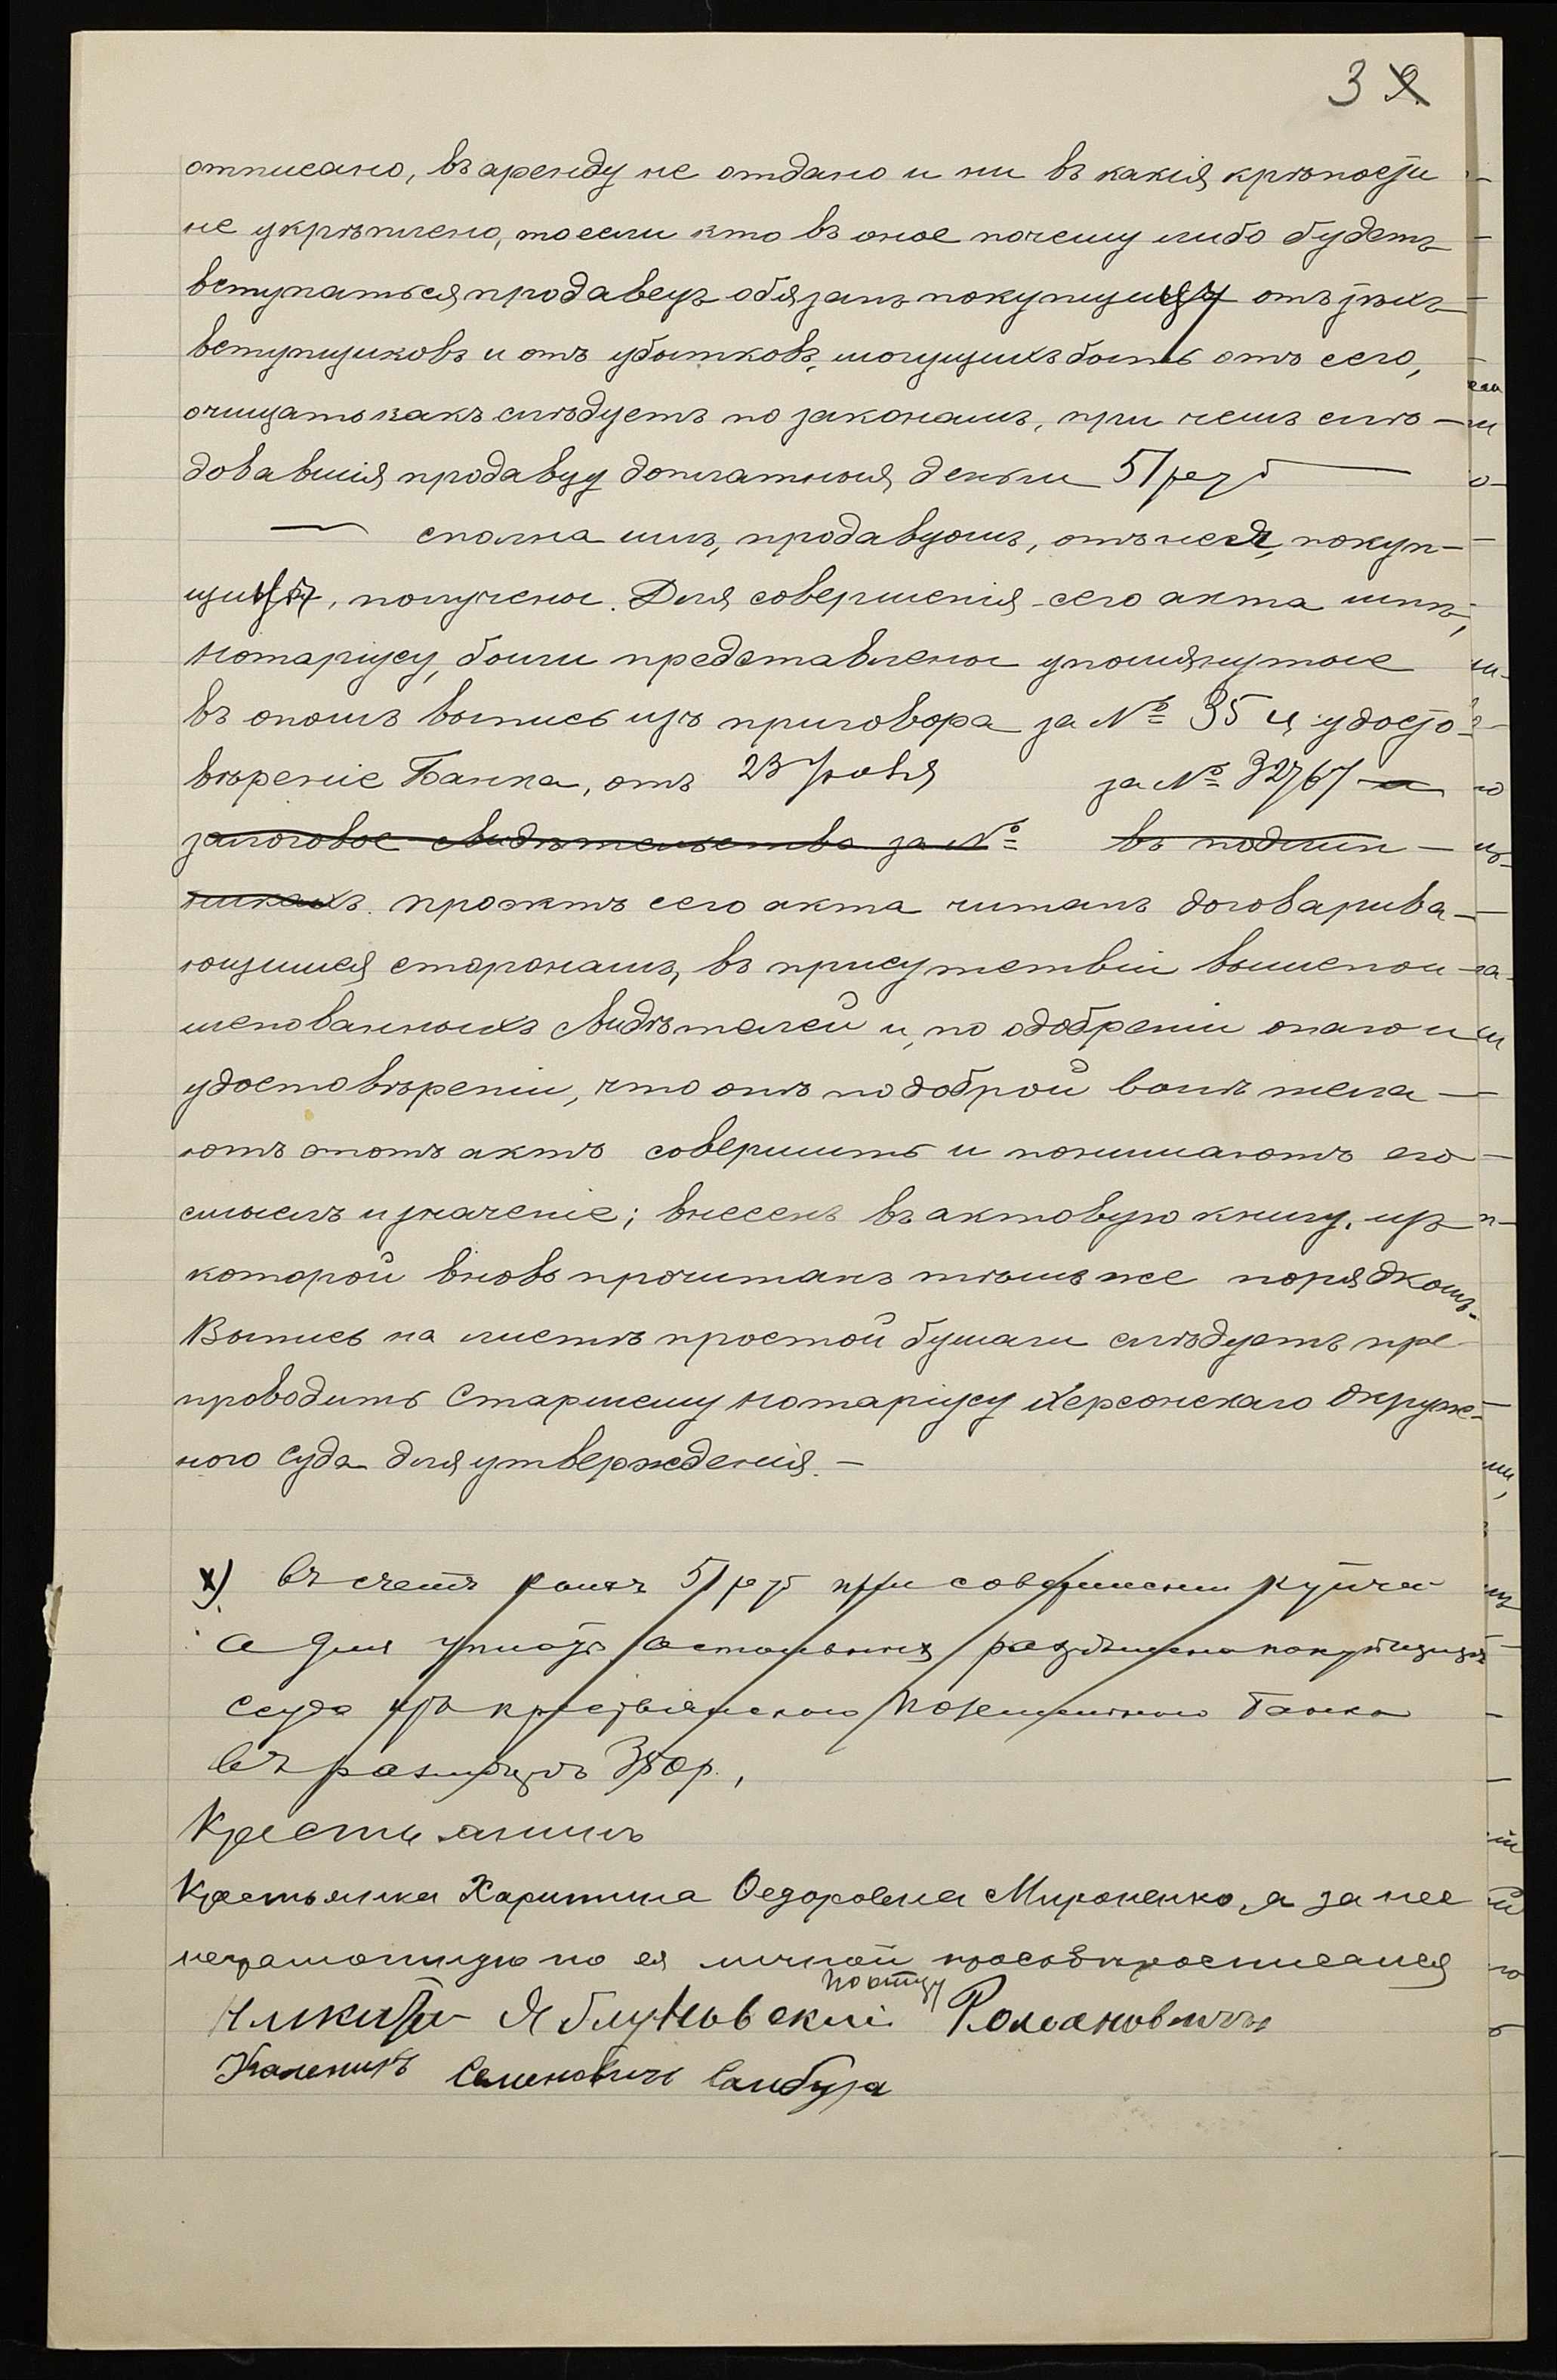 3
отписано, въ аренду не отдано и ни въ какія крѣпости
не укрѣплено, то если кто въ оное почему либо будетъ
вступаться, продавецъ обязанъ покупщицу отъ тѣхъ
вступщиковъ и отъ убытковъ, могущихъ быть отъ сего,
очищать какъ слѣдуетъ по законамъ, при чемъ слѣ-
довавшія продавцу доплатныя деньги 51 руб
сполна имъ, продавцомъ, отъ нея, покуп-
щицы, получены. Для совершенія сего акта мнѣ,
Нотаріусу, были представлены упомянутые
въ ономъ выпись изъ приговора за № 35 и удосто-
вѣреніе Банка, отъ 23 Іюня за № 32767 и
залоговое свидѣтельство за № въ подлин-
никахъ. проэктъ сего акта читанъ договарива-
ющимся сторонамъ, въ присутствіи вышепои-
менованныхъ свидѣтелей и, по одобреніи онаго и
удостовѣреніи, что онѣ по доброй волѣ жела-
ютъ этотъ актъ совершить и понимаютъ его
смыслъ и значеніе; внесенъ въ актовую книгу, изъ
которой вновь прочитанъ тѣмъ же порядкомъ.
Выпись на листѣ простой бумаги слѣдуетъ пре-
проводить Старшему Нотаріусу Херсонскаго Окруж-
ного Суда для утвержденія.-
х) Въ счетъ 51 руб при совершеніи купчей
а для уплаты остальныхъ разрѣшена покупщицѣ
ссуда изъ крестьянскаго Поземельнаго Банка
въ размѣрѣ р.,
Крестьянинъ
Крестьянка Харитина Ѳедоровна Мироненко, а за нее
неграмотную по ея личной просьбѣ росписался
Никита Яблуновскій Романовичъ
Каленикъ Семеновичъ Самбура